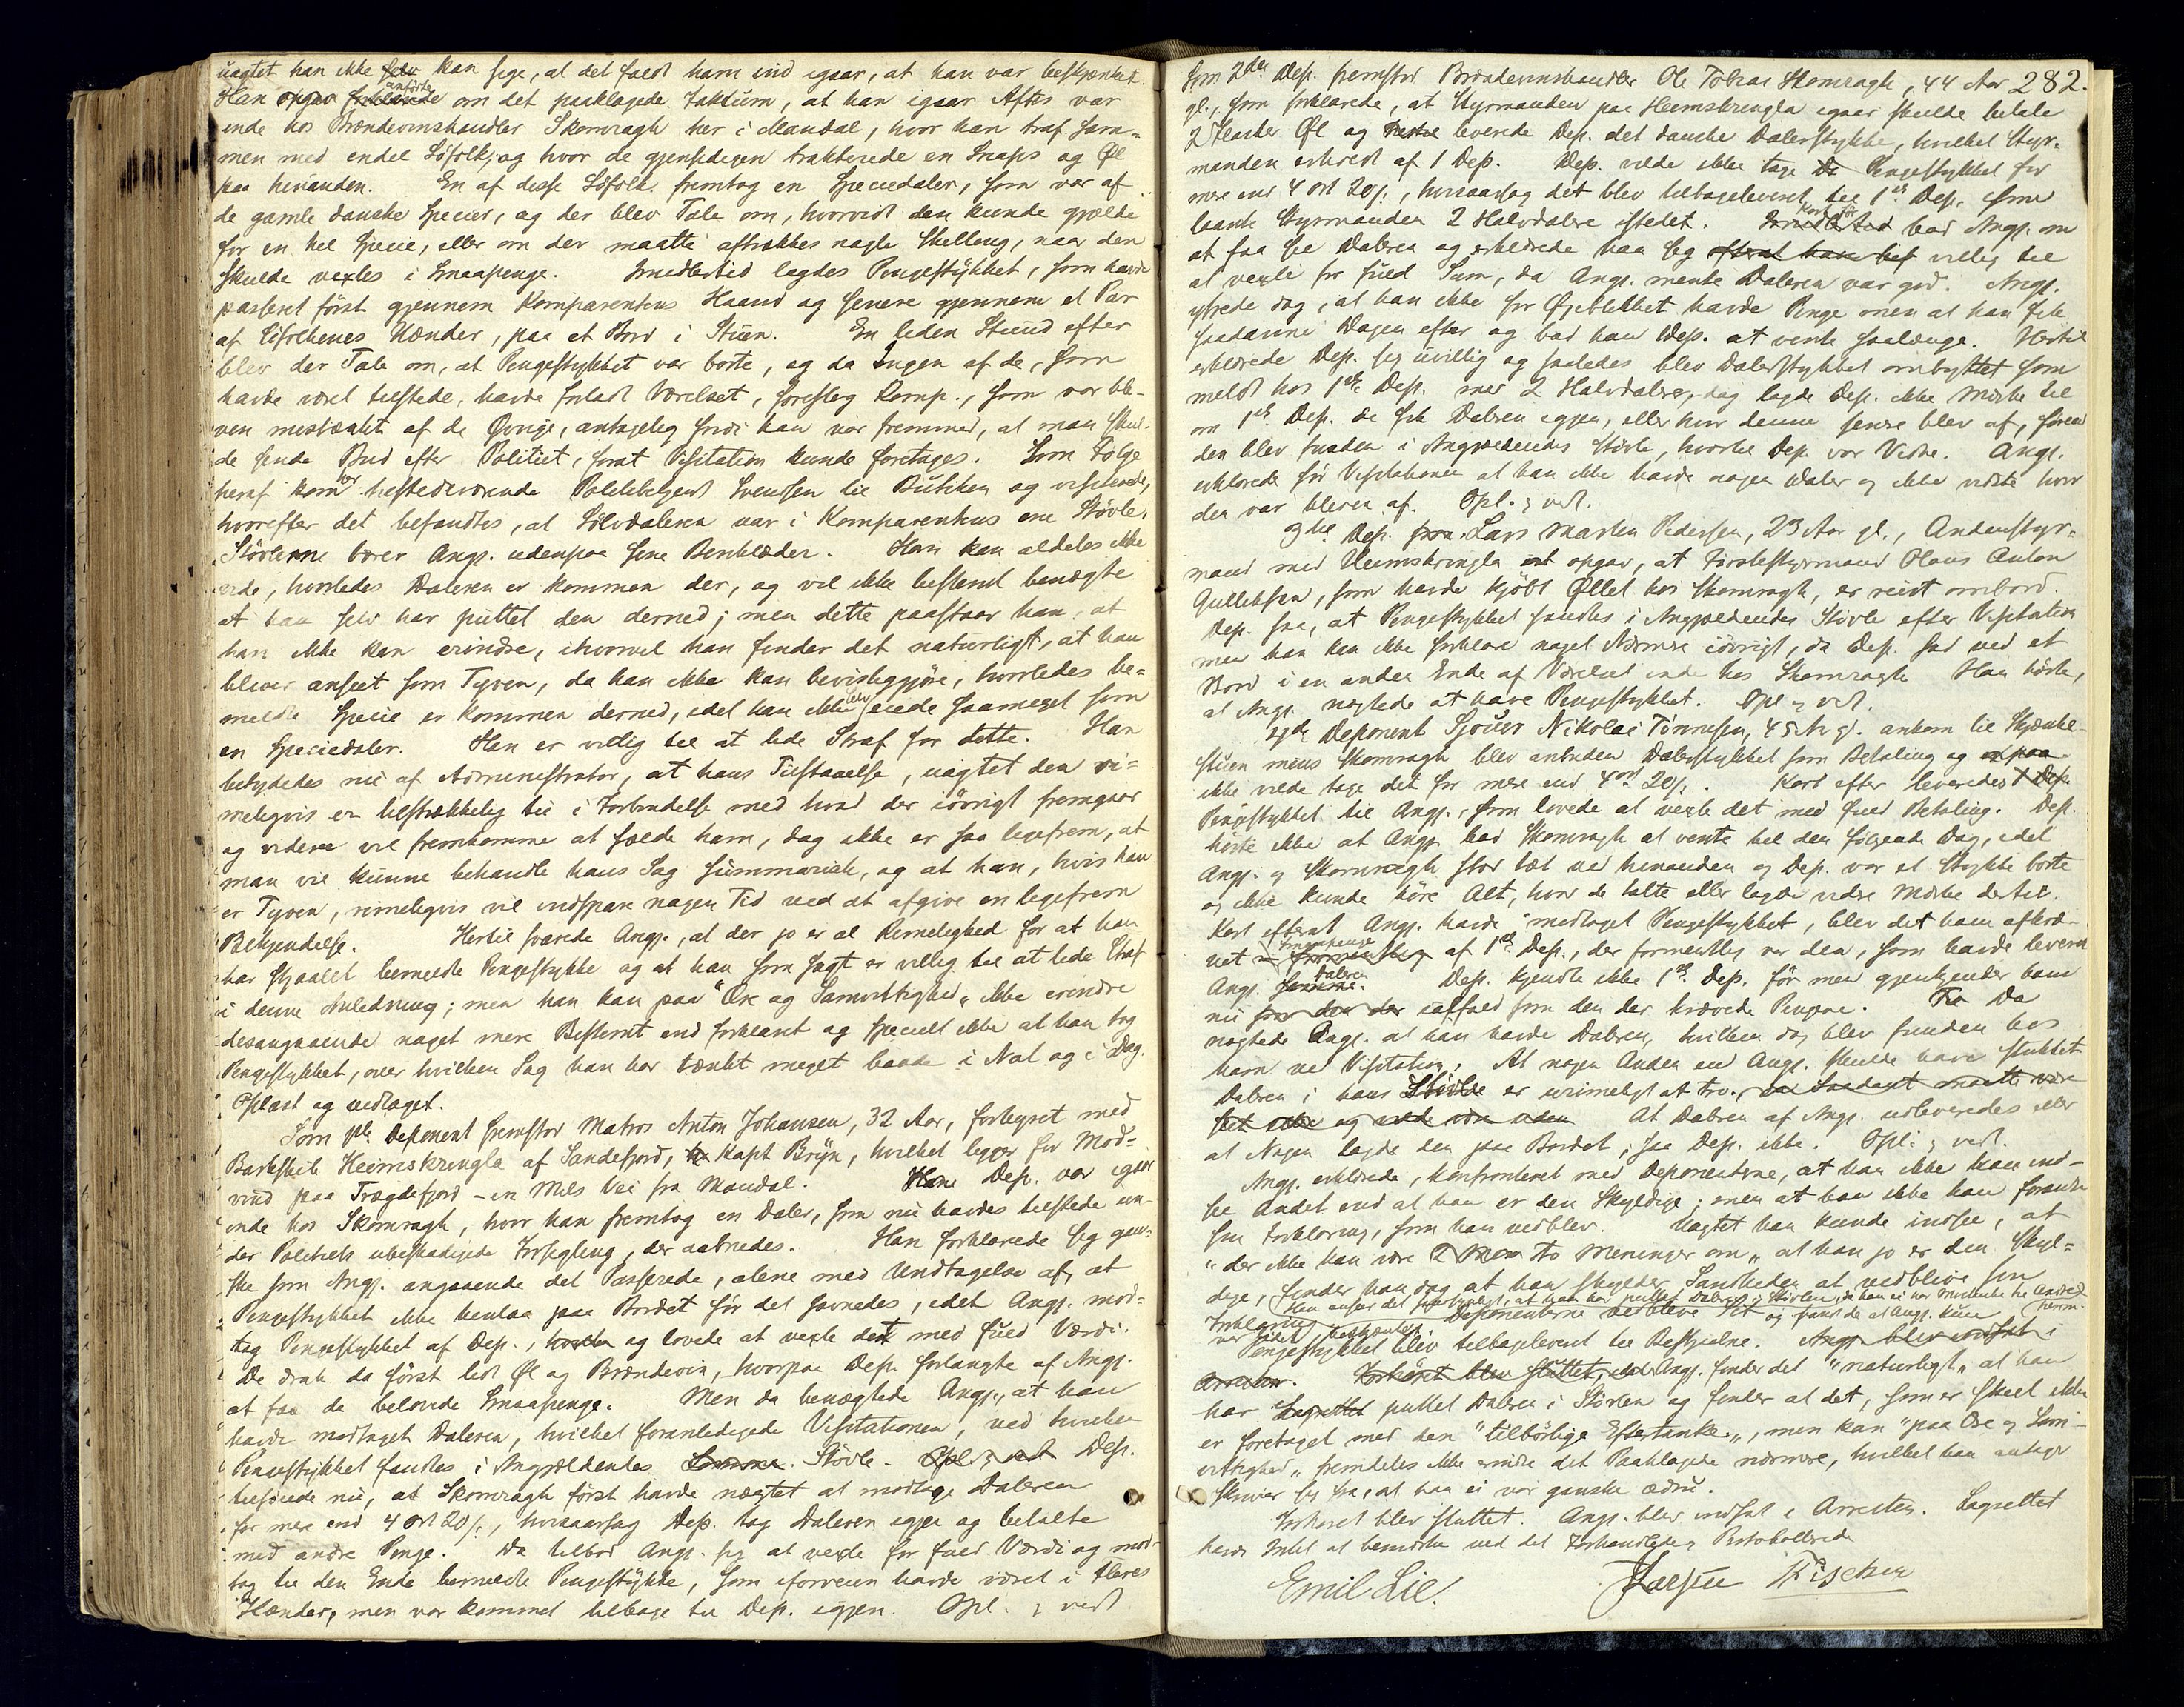 uagtet han ikke selv kan sige, at det faldt ham ind igaar, at han var beskjænket.
Han opgav forklarede anførte om det paaklagede Faktum, at han igaar Aftes var
inde hos Brændevinshandler Skomragh her i Mandal, hvor han traf sam-
men med endel Söfolk, og hvor de gjensidigen trakterede en Snaps og Øl
paa hinanden. En af disse Söfolk fremtog en Speciedaler, som var af
de gamle danske Specier, og der blev Tale om, hvorvidt den kunde gjælde
for en hel Specie, eller om der maatte aftrækkes nogle Skilling, naar den
skulde vexles i Smaapenge. Imidlertid lagdes Pengestykket, som havde
passeret först gjennem Komparentens Haand og senere gjennem et Par
af Söfolkenes Hænder, paa et Bord i Stuen. En liden Stund efter
blev der Tale om, at Pengestykket var borte, og da Ingen af de, som
havde været tilstede, havde forladt Værelset, foreslog Komp., som var ble-
ven mistænkt af de Øvrige, antagelig fordi han var fremmed, at man skul-
de sende Bud efter Politiet, forat Visitation kunde foretages. Som Fölge
heraf kom tilstedeværende Politibetjent Svendsen til Butiken og visiterede,
hvorefter det befandtes, at Sölvdaleren var i Komparentens ene Stövle.
Stövlerne bærer Angj. udenpaa sine Benklæder. Han kan aldeles ikke
vide, hvorledes Daleren er kommen der, og vil ikke bestemt benægte
at han selv har puttet den derned; men dette paastaar han, at
han ikke kan erindre, ihvorvel han finder det naturligt, at han
bliver anseet som Tyven, da han ikke kan bevisliggjöre, hvorledes be-
meldte Specie er kommen derned, idet han ikke selv eiede saameget som
en Speciedaler. Han er villig til at lide Straf for dette. Han
betydedes nu af Administrator, at hans Tilstaaelse, uagtet den ri-
meligvis er tilstrækkelig til i Forbindelse med hvad der iövrigt fremgaar
og videre vil fremkomme at fælde ham, dog ikke er saa ligefrem, at
man vil kunne behandle hans Sag summarisk, og at han, hvis han
er Tyven, rimeligvis vil indspare nogen Tid ved at afgive en ligefrem
Bekjendelse. Hertil svarede Angj., at der jo er al Rimelighed for at han
har stjaalet bemeldte Pengestykke og at han som sagt er villig til at lide Straf
i denne Anledning; men han kan paa "Ære og Samvittighed" ikke erindre
desangaaende noget mere Bestemt end forklaret og specielt ikke at han tog
Pengestykket, over hvilken Sag han har tænkt meget baade i Nat og i Dag.
Oplæst og vedtaget.
Som 1ste Deponent fremstod Matros Anton Johansen, 32 Aar, forhyret med
Barkskib Heimskringla af Sandefjord, Kapt Bryn, hvilket ligger for Mod-
vind paa Trægdefjord - en Mils Vei fra Mandal. Dep. var igaar
inde hos Skomragh, hvor han fremtog en Daler, som nu havdes tilstede un-
der Politiets ubeskadigede Forsegling, der aabnedes. Han forklarede sig gan-
ske som Angj. angaaende det Passerede, alene med Undtagelse af, at
Pengestykket ikke henlaa paa Bordet för det savnedes, idet Angj. mod-
tog Pengestykket af Dep., og lovede at vexle det med fuld Værdi.
De drak da först lidt Øl og Brændevin, hvorpaa Dep. forlangte af Angj.
at faa de belovede Smaapenge. Men da benægtede Angj., at han
havde modtaget Daleren, hvilket foranledigede Visitationen, ved hvilken
Pengestykket fandtes i Angjældendes Lomme. Stövle. Opl. & vedt Dep.
tilföiede nu, at Skomragh först havde nægtet at modtage Daleren
for mere end 4 ort 20 /., hvisaarsag Dep. tog Daleren igjen og betalte
med andre Penge. Da tilbød Angj. sig at vexle for fuld Værdi og mod-
tog til den Ende bemeldte Pengestykke, som iforveien havde været i Fleres
Hænder, men var kommet tilbage til Dep. igjen. Opl. & vedt
282.
Som 2den Dep. fremstod Brændevinshandler Ole Tobias Skomragh, 44 Aar
gl., som forklarede, at Styrmanden paa Heimskringla igaar skulde betale
2 Flasker Øl og leverede Dep. det danske Dalerstykke, hvilket Styr-
manden erholdt af 1 Dep. Dep. vilde ikke tage Pengestykket for
mere end 4 ort 20 /., hvisaarsag det blev tilbageleveret til 1ste Dep. som
laante Styrmanden 2 Halvdalere istedet. Imidlertid Kort för bad Angj. om
at faa see Daleren og erklærede han sig villig til
at vexle for fuld Sum, da Angj. mente Daleren var god. Angj.
ytrede dog, at han ikke for Øieblikket havde Penge men at han fik
saadanne Dagen efter og bad han Dep. at vente saalænge. Hertil
erklærede Dep. sig uvillig og saaledes blev Dalerstykket ombyttet som
meldt hos 1ste Dep. med 2 Halvdalere, dog lagde Dep. ikke Mærke til
om 1ste Dep. da fik Daleren igjen, eller hvor denne senere blev af, førend
den blev funden i Angjældendes Stövle, hvortil Dep. var Vidne. Angj.
erklærede för Visitationen at han ikke havde nogen Daler og ikke vidste hvor
den var bleven af. Opl. & vedt.
3die Dep. Lars Martin Pedersen, 23 Aar gl., Andenstyr-
mand med Heimskringla opgav, at Förstestyrmand Hans Anton
Gulliksen, som havde kjöbt Øllet hos Skomragh, er reist ombord.
Dep. saa, at Pengestykket fandtes i Angjældendes Stövle efter Visitation
men han kan ikke forklare noget Nærmere iövrigt, da Dep. sad ved et
Bord i en anden Ende af Værelset inde hos Skomragh. Han hörte,
at Angj. nægtede at have Pengestykket. Opl. & vedt.
4de Deponent Sjouer Nikolai Tönnesen, 45 Aar gl. ankom til Skjænke-
stuen mens Skomragh blev anbuden Dalerstykket som Betaling og
ikke vilde tage det for mere end 4 ort 20 /. Kort efter leveredes 1 Dep.
Pengestykket til Angj., som lovede at vexle det med fuld Betaling. Dep.
hörte ikke at Angj. bad Skomragh at vente til den følgende Dag, idet
Angj. og Skomragh stod tæt ved hinanden og Dep. var et Stykke borte
og ikke kunde höre Alt, hvad de talte eller lagde videre Mærke dertil.
Kort efterat Angj. havde modtaget Pengestykket, blev det ham afkræ-
vet Smaapenge af 1ste Dep., der formentlig var den, som havde leveret
Angj. samme. Daleren Dep. kjendte ikke 1ste Dep. för men gjenkjender ham
nu ialfald som den der krævede Pengene. Da
nægtede Angj. at han havde Daleren, hvilken dog blev funden hos
ham ved Visitation. At nogen Anden end Angj. skulde have stukket
Daleren i hans Stövle er urimeligt at tro, da Saadant maatte være
At Daleren af Angj. udleveredes eller
at Nogen lagde den paa Bordet, saa Dep. ikke. Opl. & vedt.
Angj. erklærede, konfronteret med Deponenterne, at han ikke kan ind-
see Andet end at han er den Skyldige; men at han ikke kan forandre
sin Forklaring, som han vedblev. Uagtet han kunde indsee, at
"der ikke kan være to Meninger om" at han jo er den Skyl-
dige, finder han dog at han skylder Sandheden at vedblive sin
Forklaring Deponenterne vedbleve Sit og fandt de at Angj. kun
var lidet beskjænket.
Pengestykket blev tilbageleveret til Vedkjendelse. Angj. blev indsat i
Arresten. Forhöret blev sluttet, idet Angj. finder det "naturligt" at han
har puttet Daleren i Stövlen og finder at det, som er skeet ikke
er foretaget med den "tilbörlige Eftertanke", men kan "paa Ære og Sam-
vittighed" fremdeles ikke erindre det Paaklagede nærmere, hvilket han antager
skriver sig fra, at han ei var ganske ædru.
Forhöret blev sluttet. Angj. blev indsat i Arresten. Lagrettet
havde Intet at bemærke ved det Forhandledes Protokollerede
Emil Lie. Fischer